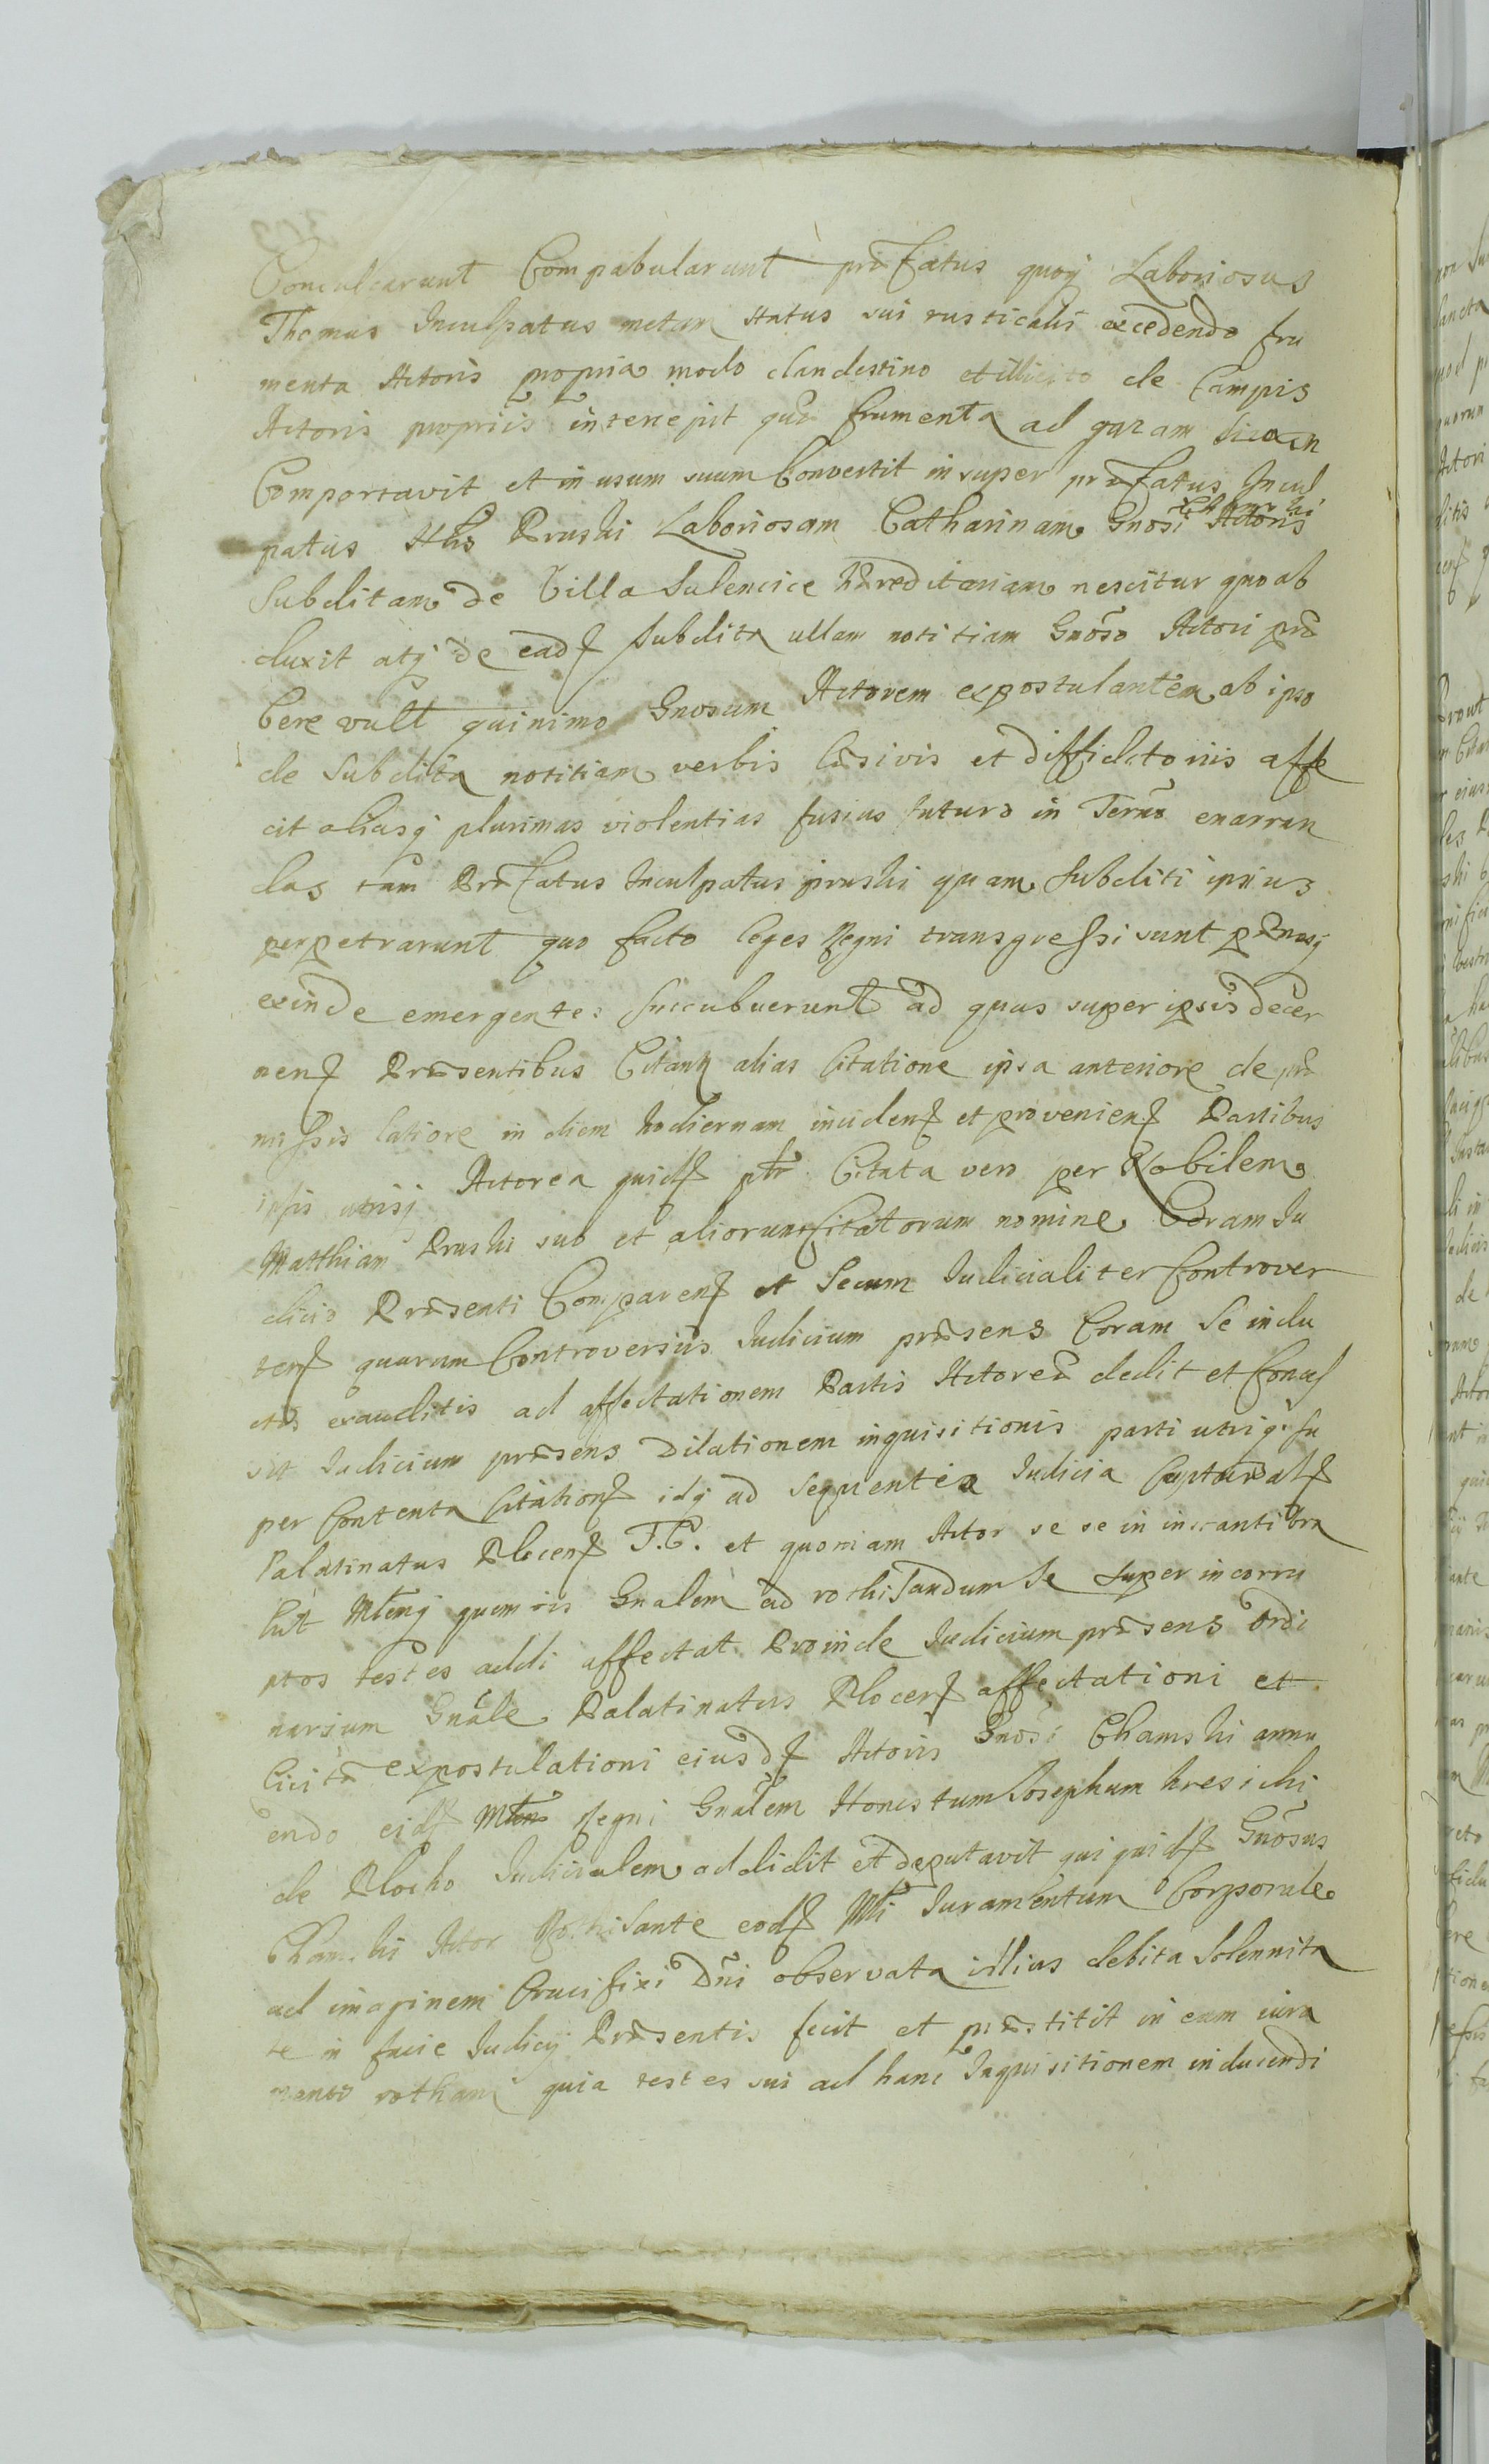 Conculcarunt Compabularunt præfatus quoq Laboriosus
Thomas Inculpatus metam status sui rusticalis excedendo fru
menta Actoris propria modo clandestino et illicito de Campis
Actoris propriis intercepit quæ frumenta ad
Comportavit et in usum suum Convertit insuper præfatus Incul
patus Nlis Pruski Laboriosam Catharinam Gnosi Chamski Actoris
Subditam de Villa Sulencice Hæreditariam nescitur quo ab
duxit atq de ead subdita ullam notitiam Gnoso Actori præ
bere vult quinimo Gnosum Actorem expostulantem ab ipso
de Subdita notitiam verbis læsivis et diffidatoriis affe
cit aliasq plurimas violentias fusius futuro in Termo enarran
das tam Præfatus Inculpatus Pruski quam Subditi ipsius
perpetrarunt quo facto leges Regni transgressi sunt pænasq
exinde emergentes succubuerunt ad quas super ipsis decer
nen Præsentibus Citantr alias Citatione ipsa anteriore de præ
missis latiore in diem hodiernam inciden et provenien Partibus
ipsis utrisq Actorea quid ptr Citata vero per Nobilem
Matthiam Pruski suo et aliorum Citatorum nomine Coram Iu
dicio Præsenti Comparen et Secum Iudicialiter Controver
ten quarum Controversiis Iudicium præsens Coram Se indu
ctis exauditis ad affectationem Partis Actoreæ dedit et Conces
sit Iudicium præsens Dilationem inquisitionis parti utriq su
per Contenta Citation idq ad sequentia Iudicia Captural
Palatinatus Plocen F.C. et quoniam Actor se se in instanti
Mlemq quemvis Gnalem ad rothisandum Se super incorru
ptos testes addi affectat Proinde Iudicium præsens Ordi
narium Gnale Palatinatus Plocen affectationi et
licitæ expostulationi eiusd Actoris Gnosi Chamski annu
endo eid Mlem Regni Gnalem Honestum Josephum Kresicki
de Plocko Iudicialem addidit et deputavit qui quid Gnosus
Chamski Actor Rothisante eod Mli Iuramentum Corporale
ad imaginem Crucifixi Dni observata illius debita Solennita
te in facie Iudicij Præsentis fecit et præstitit in eam iura
menti rotham quia testes sui ad hanc Inquisitionem inducendi